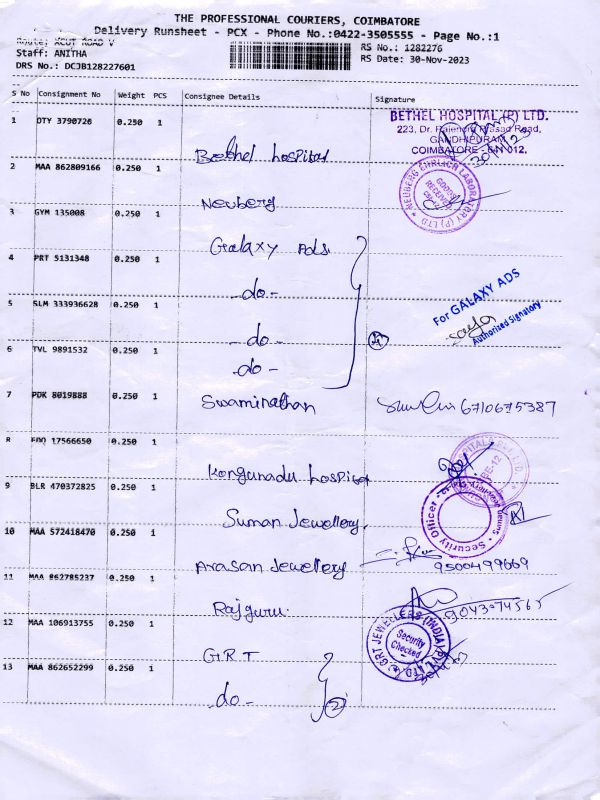 THE PROFESSIONAL COURIERS, COIMBATORE
Delivery Runsheet - PCX - Phone No.:0422-3505555 - Page No.:1
Route: XCUT ROAD V
Staff: ANITHA
DRS No.: DCJB128227601
RS No.: 1282276
RS Date: 30-Nov-2023
S No Consignment No Weight PCS Consignee Details Signature
1 DTY 3790726 0.250 1 Bethel hospital
BETHEL HOSPITAL (P) LTD.
223, Dr. Rajendra Prasad Road,
GANDHIPURAM,
COIMBATORE - 641 012.
2 MAA 862809166 0.250 1 Neuberg
NEUBERG EHRLICH LABORATORY (P) LTD
GOODS
RECEIVED
3 GYM 135008 0.250 1 Galaxy Ads
4 PRT 5131348 0.250 1 -do-
5 SLM 333936628 0.250 1 -do-
For GALAXY ADS
Authorised Signatory
6 TVL 9891532 0.250 1 -do-
4
7 PDK 8019888 0.250 1 Swaminathan
6710675387
8 EDQ 17566650 0.250 1 Kongunadu hospital
9 BLR 470372825 0.250 1 Suman Jewellery
Security Officer
10 MAA 572418470 0.250 1 Arasan Jewellery
9500499669
11 MAA 862785237 0.250 1 Rajguru.
9043074565
12 MAA 106913755 0.250 1 G.R.T
GRT JEWELLERS (INDIA) PVT LTD
Security
Checked
13 MAA 862652299 0.250 1 -do-
2